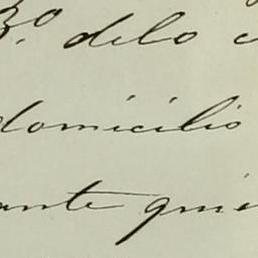 3.º delo c
domicilio
ante quie